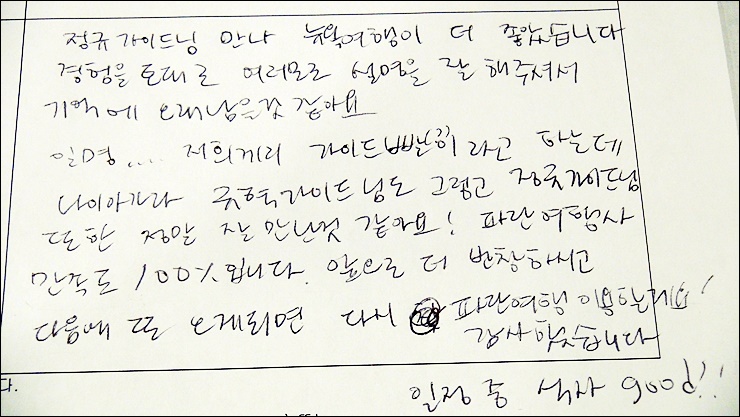 정규가이드님 만나 뉴욕여행이 더 좋았습니다
경험을 토대로 여러모로 설명을 잘 해주셔서
기억에 오래남을것 같아요
일명.... 저희끼리 가이드빨 이라고 하는데
나이아가라 가이드님도 그렇고 정규가이드님
또한 정말 잘 만난것 같아요! 파란여행사
만족도 100%입니다. 앞으로 더 번창하시고
다음에 또 오게되면 다시 파란여행 이용할게요!
감사했습니다
다.
일정 중 식사 good!!